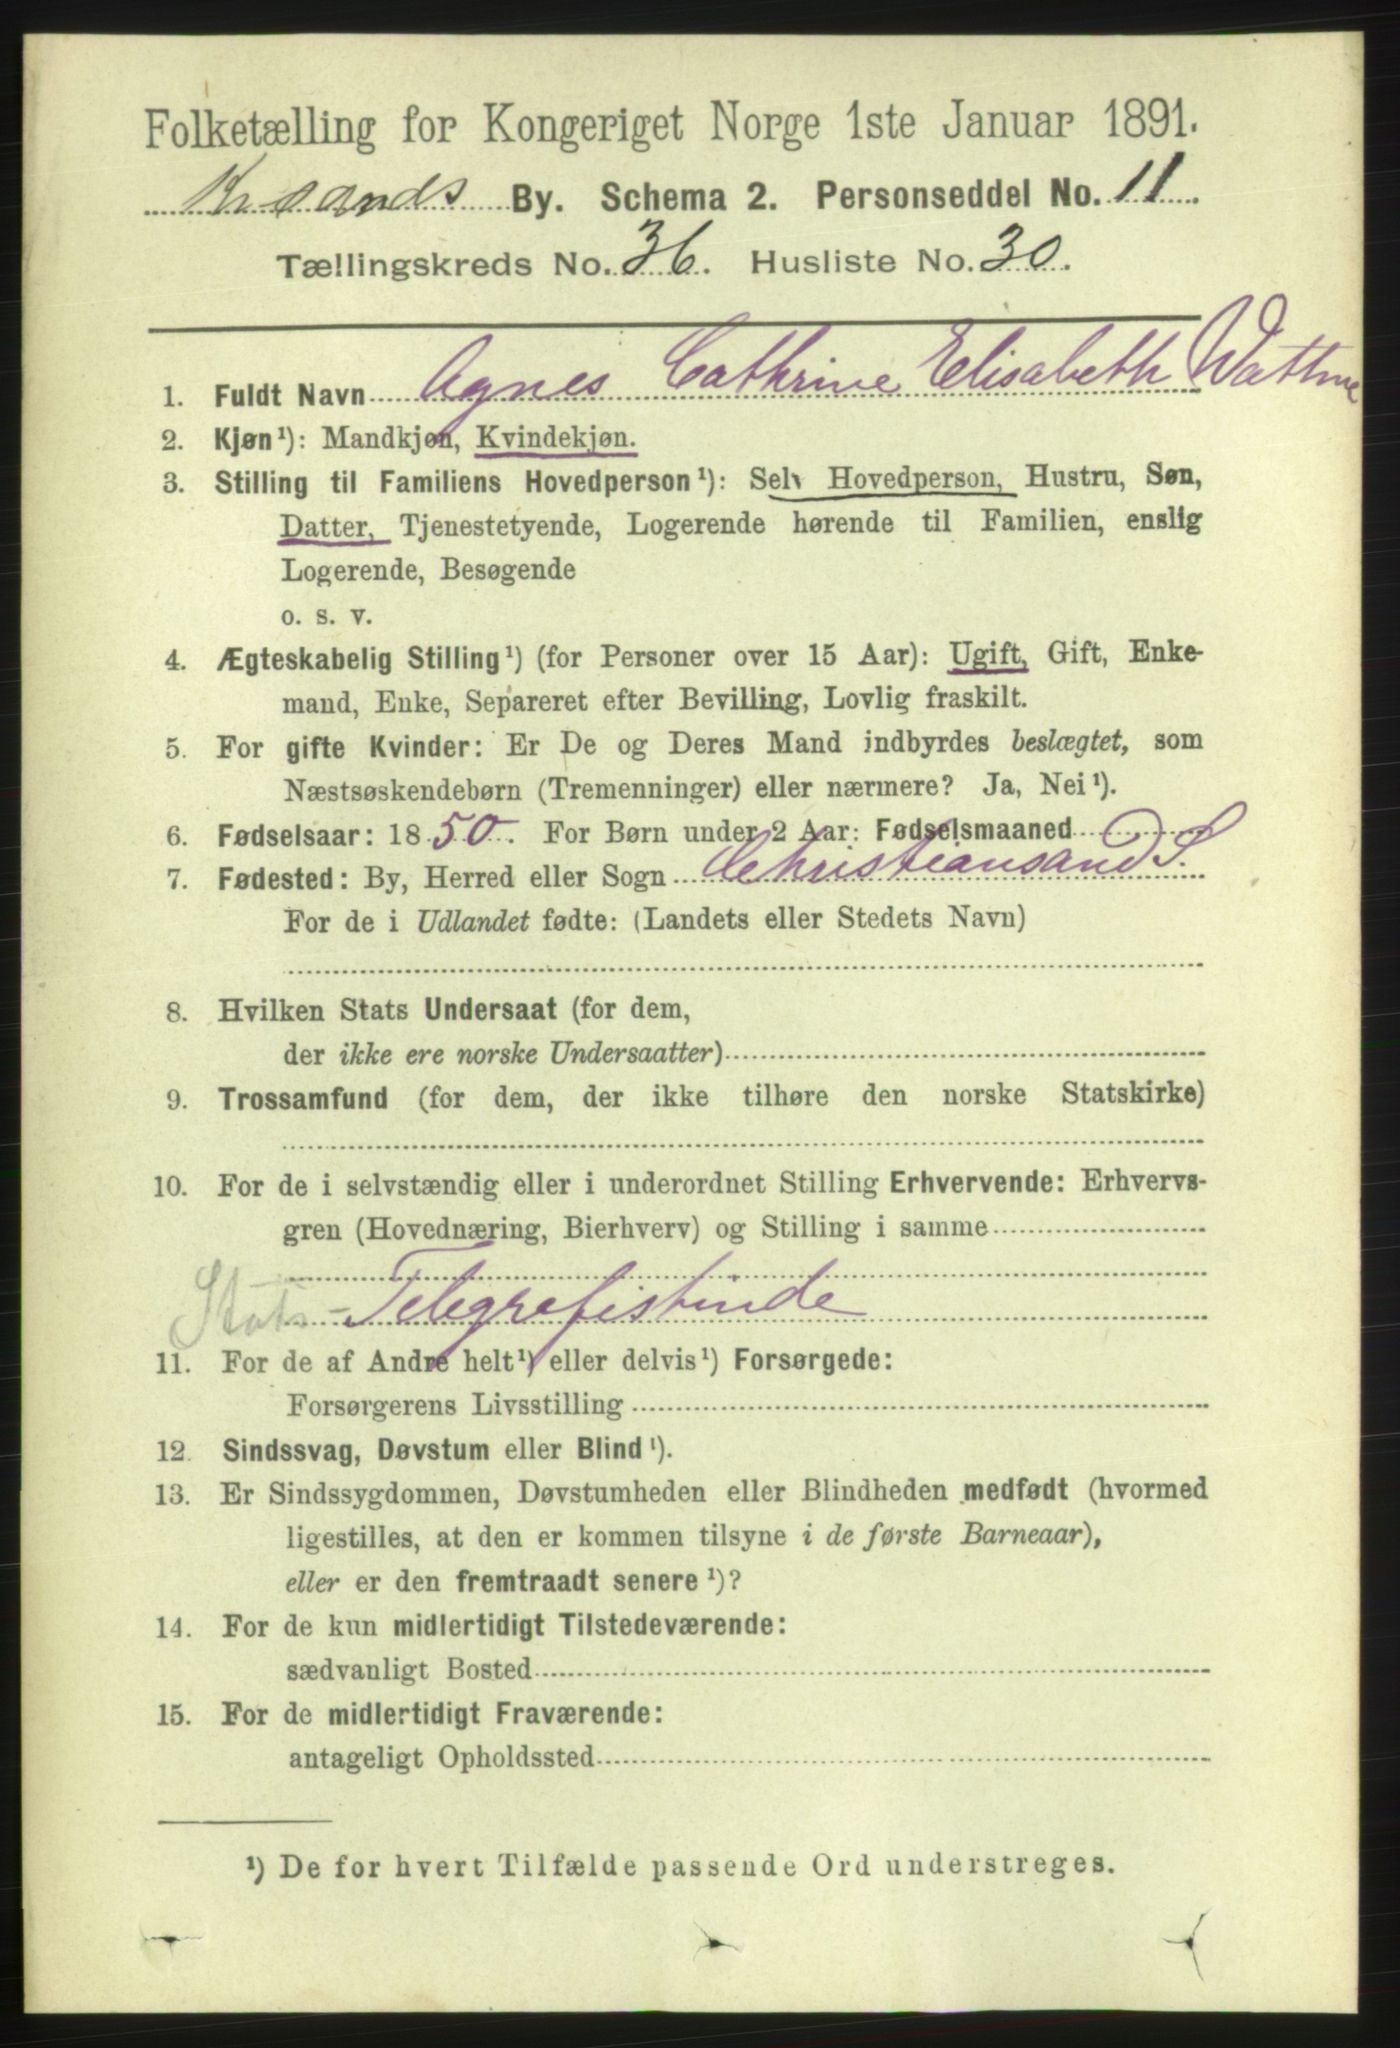 Folketælling for Kongeriget Norge 1ste Januar 1891.
Krsands By. Schema 2. Personseddel No. 11
Tællingskreds No. 36. Husliste No. 30.
1. Fuldt Navn Agnes Cathrine Elisabeth Wattne
2. Kjøn¹): Mandkjøn, Kvindekjøn.
3. Stilling til Familiens Hovedperson¹): Selv Hovedperson, Hustru, Søn,
Datter, Tjenestetyende, Logerende hørende til Familien, enslig
Logerende, Besøgende
o. s. v.
4. Ægteskabelig Stilling¹) (for Personer over 15 Aar): Ugift, Gift, Enke-
mand, Enke, Separeret efter Bevilling, Lovlig fraskilt.
5. For gifte Kvinder: Er De og Deres Mand indbyrdes beslægtet, som
Næstsøskendebørn (Tremenninger) eller nærmere? Ja, Nei¹).
6. Fødselsaar: 1850. For Børn under 2 Aar: Fødselsmaaned
7. Fødested: By, Herred eller Sogn Christiansand S.
For de i Udlandet fødte: (Landets eller Stedets Navn)
8. Hvilken Stats Undersaat (for dem,
der ikke ere norske Undersaatter)
9. Trossamfund (for dem, der ikke tilhøre den norske Statskirke)
10. For de i selvstændig eller i underordnet Stilling Erhvervende: Erhvervs-
gren (Hovednæring, Bierhverv) og Stilling i samme
Stats-Telegrafistinde
11. For de af Andre helt¹) eller delvis¹) Forsørgede:
Forsørgerens Livsstilling
12. Sindssvag, Døvstum eller Blind¹).
13. Er Sindssygdommen, Døvstumheden eller Blindheden medfødt (hvormed
ligestilles, at den er kommen tilsyne i de første Barneaar),
eller er den fremtraadt senere¹)?
14. For de kun midlertidigt Tilstedeværende:
sædvanligt Bosted
15. For de midlertidigt Fraværende:
antageligt Opholdssted
¹) De for hvert Tilfælde passende Ord understreges.